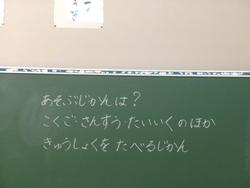 あそぶじかんは？
こくご・さんすう・たいいくのほか
きゅうしょくを たべるじかん